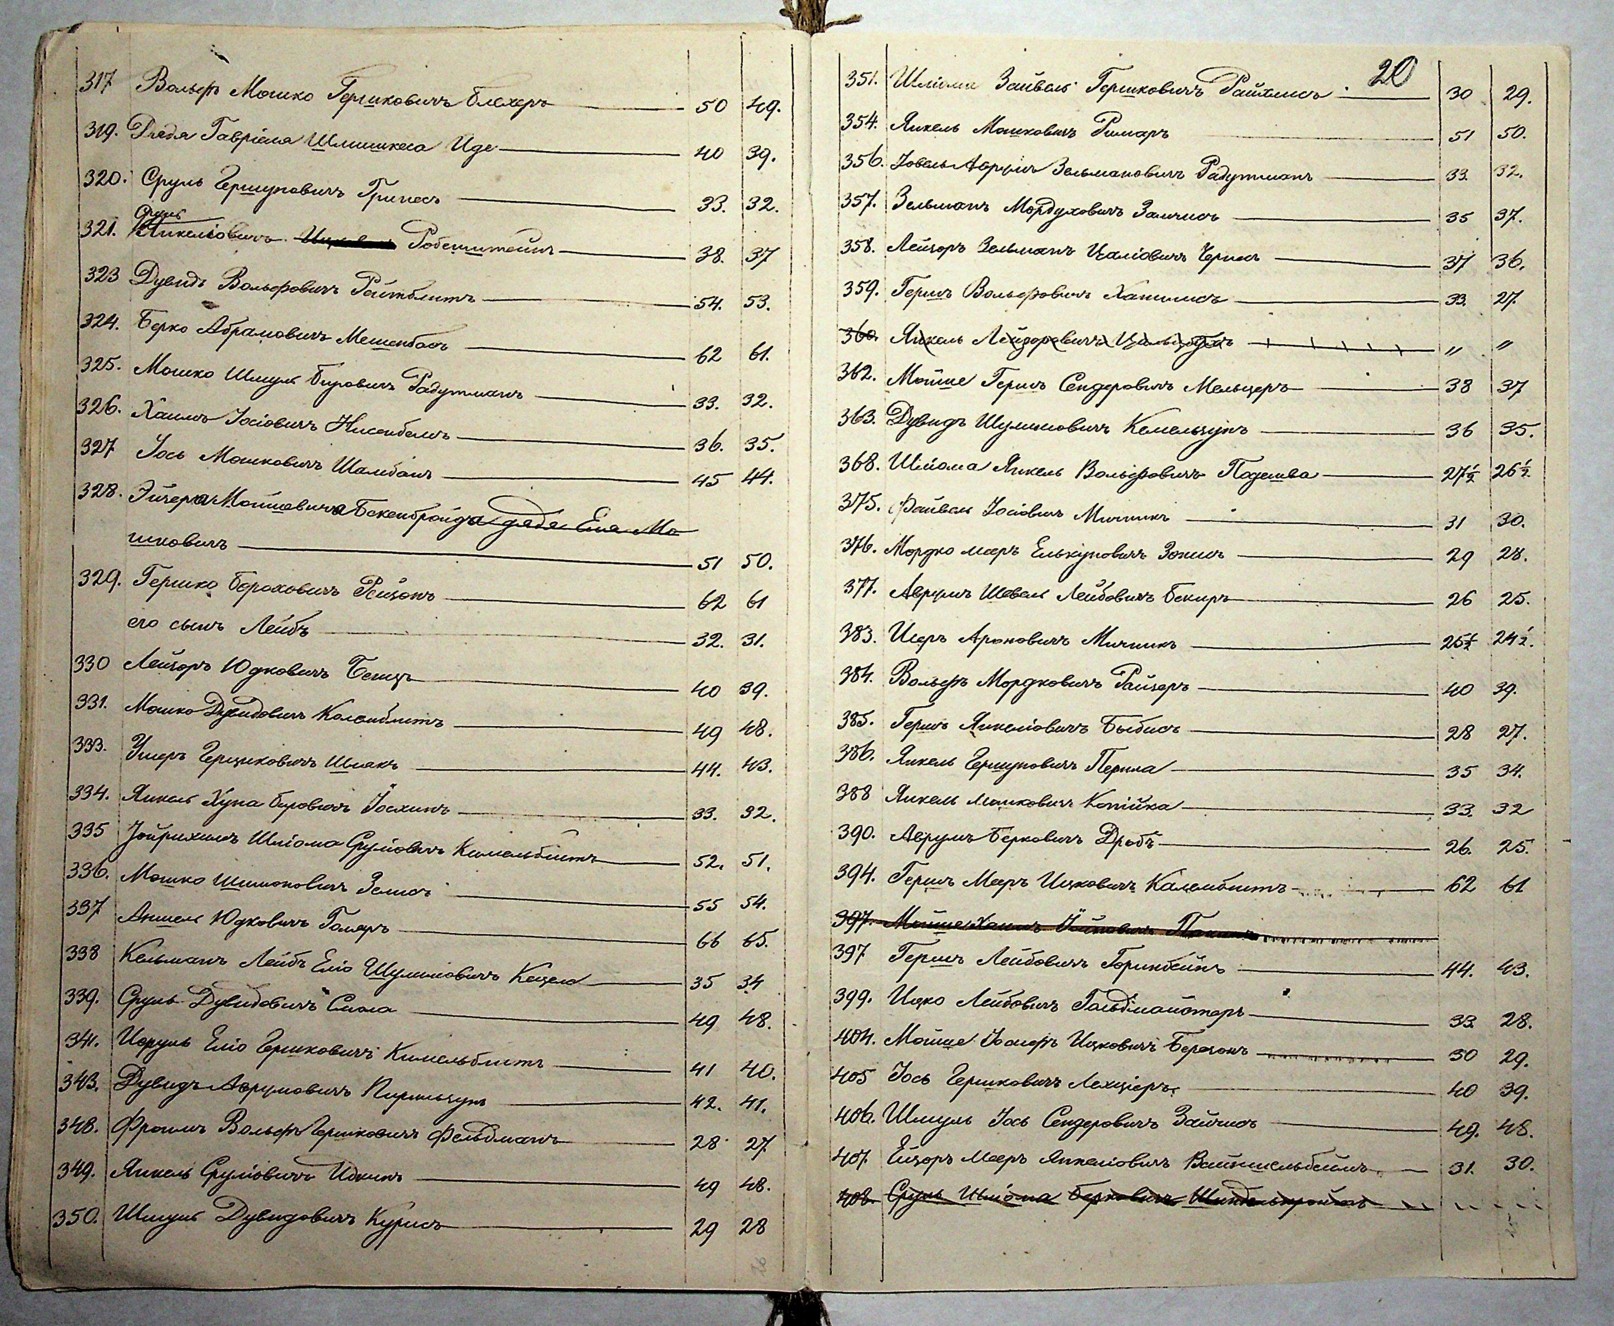 317 Вольфъ Мошко Гершковичъ Блехеръ 50 49.
319. Гавріела Иде 40 39.
320. Сруль Гершуновичъ Гринесъ 33. 32.
Сруль
321. Янкеліовичъ 38. 37
323 Дувидъ Вольфовичъ Ройтблитъ 54. 53.
324. Берко Абрамовичъ 62 61.
325. Мошко Шмуль Боровичъ Радутманъ 33. 32.
326. Хаимъ Іосіовичъ Нисенбемъ 36. 35.
327 Іось Мошковичъ Шамбанъ 45 44.
328. Мойшевича дядя Еля Мо
шковичъ 51 50.
329. Гершко Бороховичъ 62 61
его сынъ Лейбъ 32. 31.
330 Лейзоръ Юдковичъ 40 39.
331. Мошко Дувидовичъ Калемблитъ 49 48.
333. Умеръ Гершковичъ Шпакъ 44. 43.
334. Янкель Хуна Боровичъ 33. 32.
335 Шліома Сруліовичъ Кимельблитъ 52. 51.
336. Мошко Шимоновичъ Зелисъ 55 54.
337 Аншель Юдковичъ Гольеръ 66 65.
338 Кельманъ Лейбъ Еліо Шулимовичъ 35 34
339. Сруль Дувидовичъ Смола 49 48.
341. Исруль Еліо Гершковичъ Кимельблитъ 41 40.
343. Дувидъ Аврумовичъ 42. 41.
348. Фроимъ Вольфъ Гершковичъ Фельдманъ 28 27.
349. Янкель Сруліовичъ Идкинъ 49 48.
350. Шмуль Дувидовичъ Курисъ 29 28
20
351. Шліома Зайвель Гершковичъ Райхлисъ 30 29.
354. Янкель Мошковичъ Римаръ 51 50.
356. Іовель Аврумъ Зельмановичъ Радутманъ 33. 32.
357. Зельманъ Мордуховичъ Зайчисъ 35 37.
358. Лейзоръ Зельманъ Чернисъ 37 36.
359. Гершъ Вольфовичъ 33. 27
360. Янкель Лейзоровичъ " "
362. Мойше Гершъ Сендеровичъ Мельцеръ 38 37
363. Дувидъ Шулимовичъ 36 35.
368. Шліома Янкель Вольфовичъ Подешва 27½ 26½.
375. Файвель Іосіовичъ Мичникъ 31 30.
376. Мордко Мееръ Елькуновичъ 29 28.
377. Аврумъ Шевель Лейбовичъ Бекиръ 26 25.
383. Шеръ Ароновичъ Мичникъ 25½ 24½.
384. Вольфъ Мордковичъ Райзеръ 40 39.
385. Гершъ Янкеліовичъ Быбисъ 28 27.
386. Янкель Гершуновичъ Перила 35 34.
388 Янкель Мошковичъ Копійка 33. 32
390. Аврумъ Берковичъ Дробъ 26. 25.
394. Гершъ Мееръ Ицковичъ Калемблитъ 62 61
397. Мойше Хаимъ
397 Гершъ Лейбовичъ Горинбейнъ 44. 43.
399. Ицко Лейбовичъ 33 28.
404. Мойше Іосифъ Ицковичъ Березонъ 30 29.
405 Іось Гершковичъ Лехціеръ 40 39.
406. Шмуль Іось Сендеровичъ Зайчисъ 49. 48.
407. Ейзоръ Мееръ Янкеліовичъ 31. 30.
408. Сруль Шліома Берковичъ